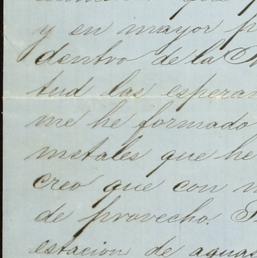 que
y en mayor p
dentro de la
tud las esperan
me he formado
metales que he
creo que con m
de provecho.
estacion de aguas